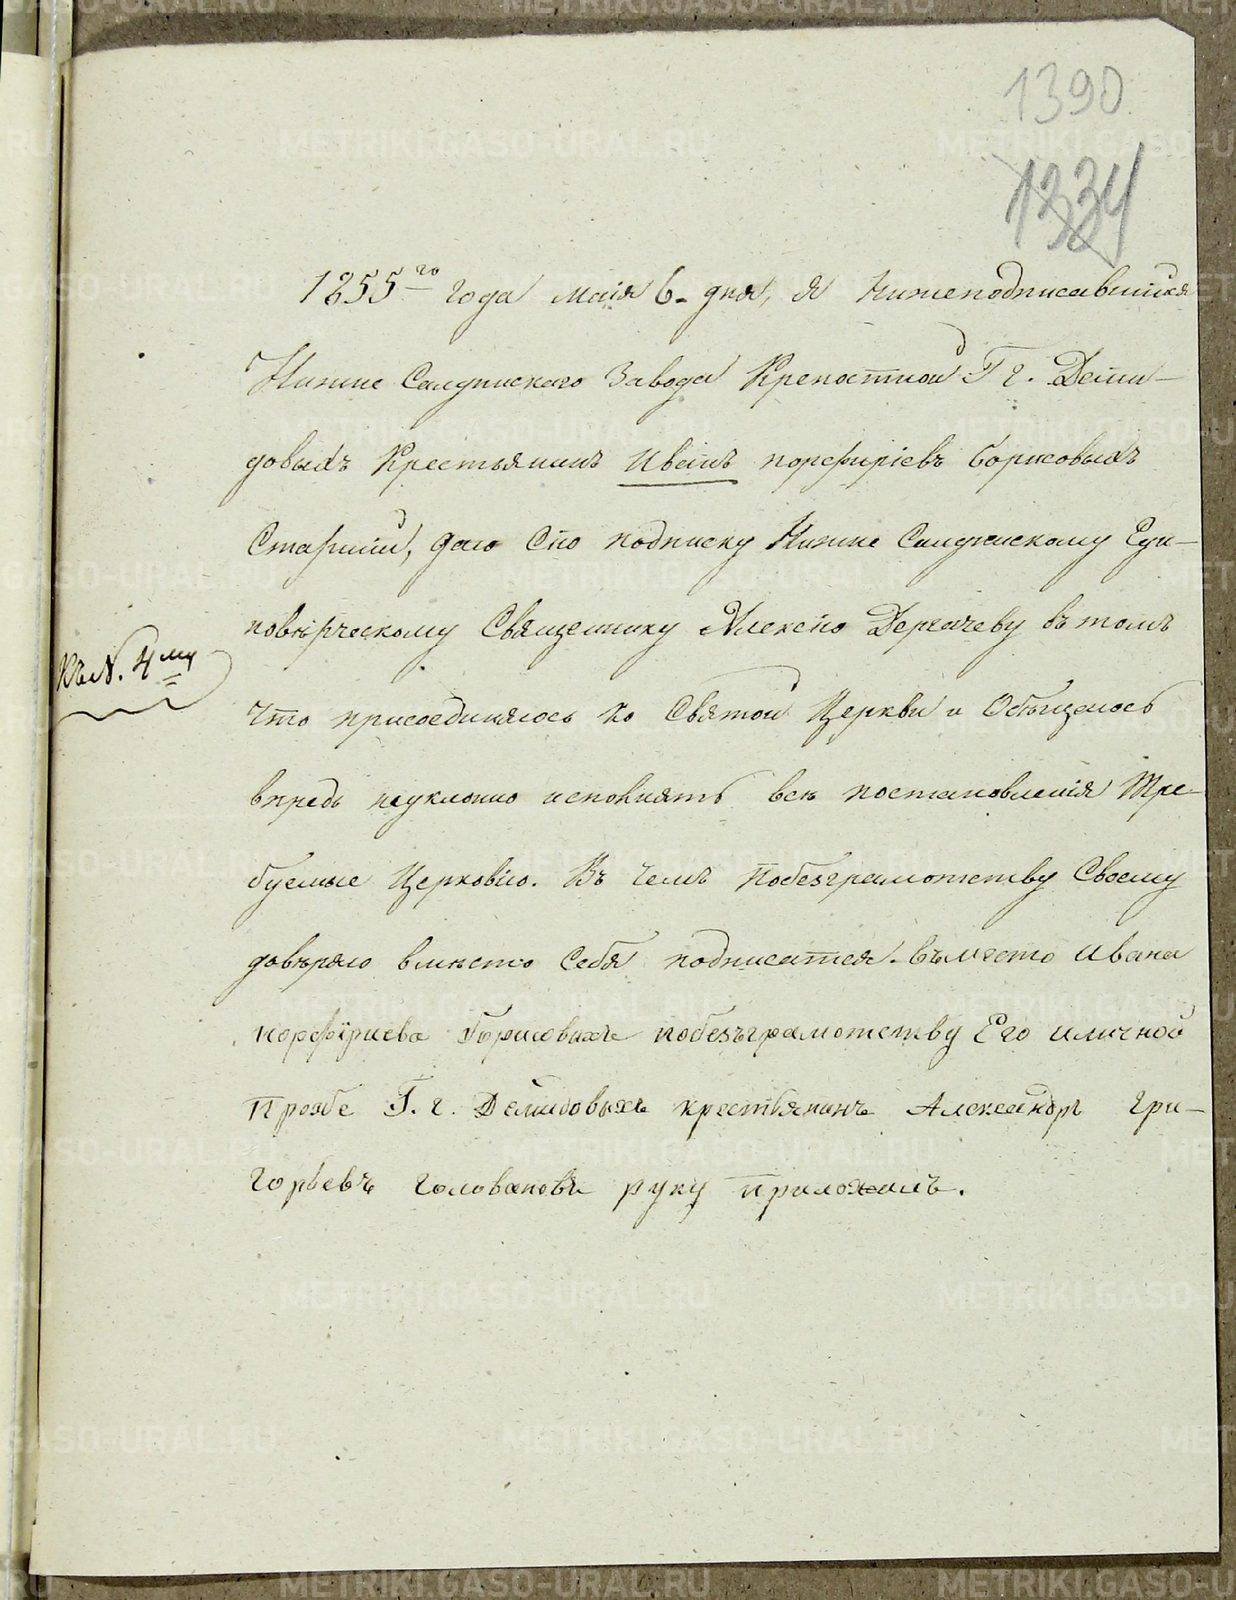 1390
1334
1855го года маiя 6. дня, я нижеподписавшiйся
Нижне Салдинского Завода Крепостной Г г. Деми-
довыхъ Крестьянинъ Иванъ порфирiевъ Борисовыхъ
Старшiй, даю Сiю подписку Нижне Салдинскому Еди-
новѣрческому Священнику Алексѣю Дергачеву въ томъ
Что присоединяюсь Ко Святой Церкви и Обѣщаюсь
впредь неуклонно исполнять всѣ постановленiя Тре-
буемые Церковiю. Въ чемъ Побезграмотству Своему
довѣряю вмѣсто Себя подписатся. Въместо Ивана
порфириева Борисовыхъ побезъграмотству Его иличной
Прозбе Г. г. Демидовыхъ крестьянинъ Александръ Гри-
горьевъ Головановъ руку приложилъ.
Къ N. 4му